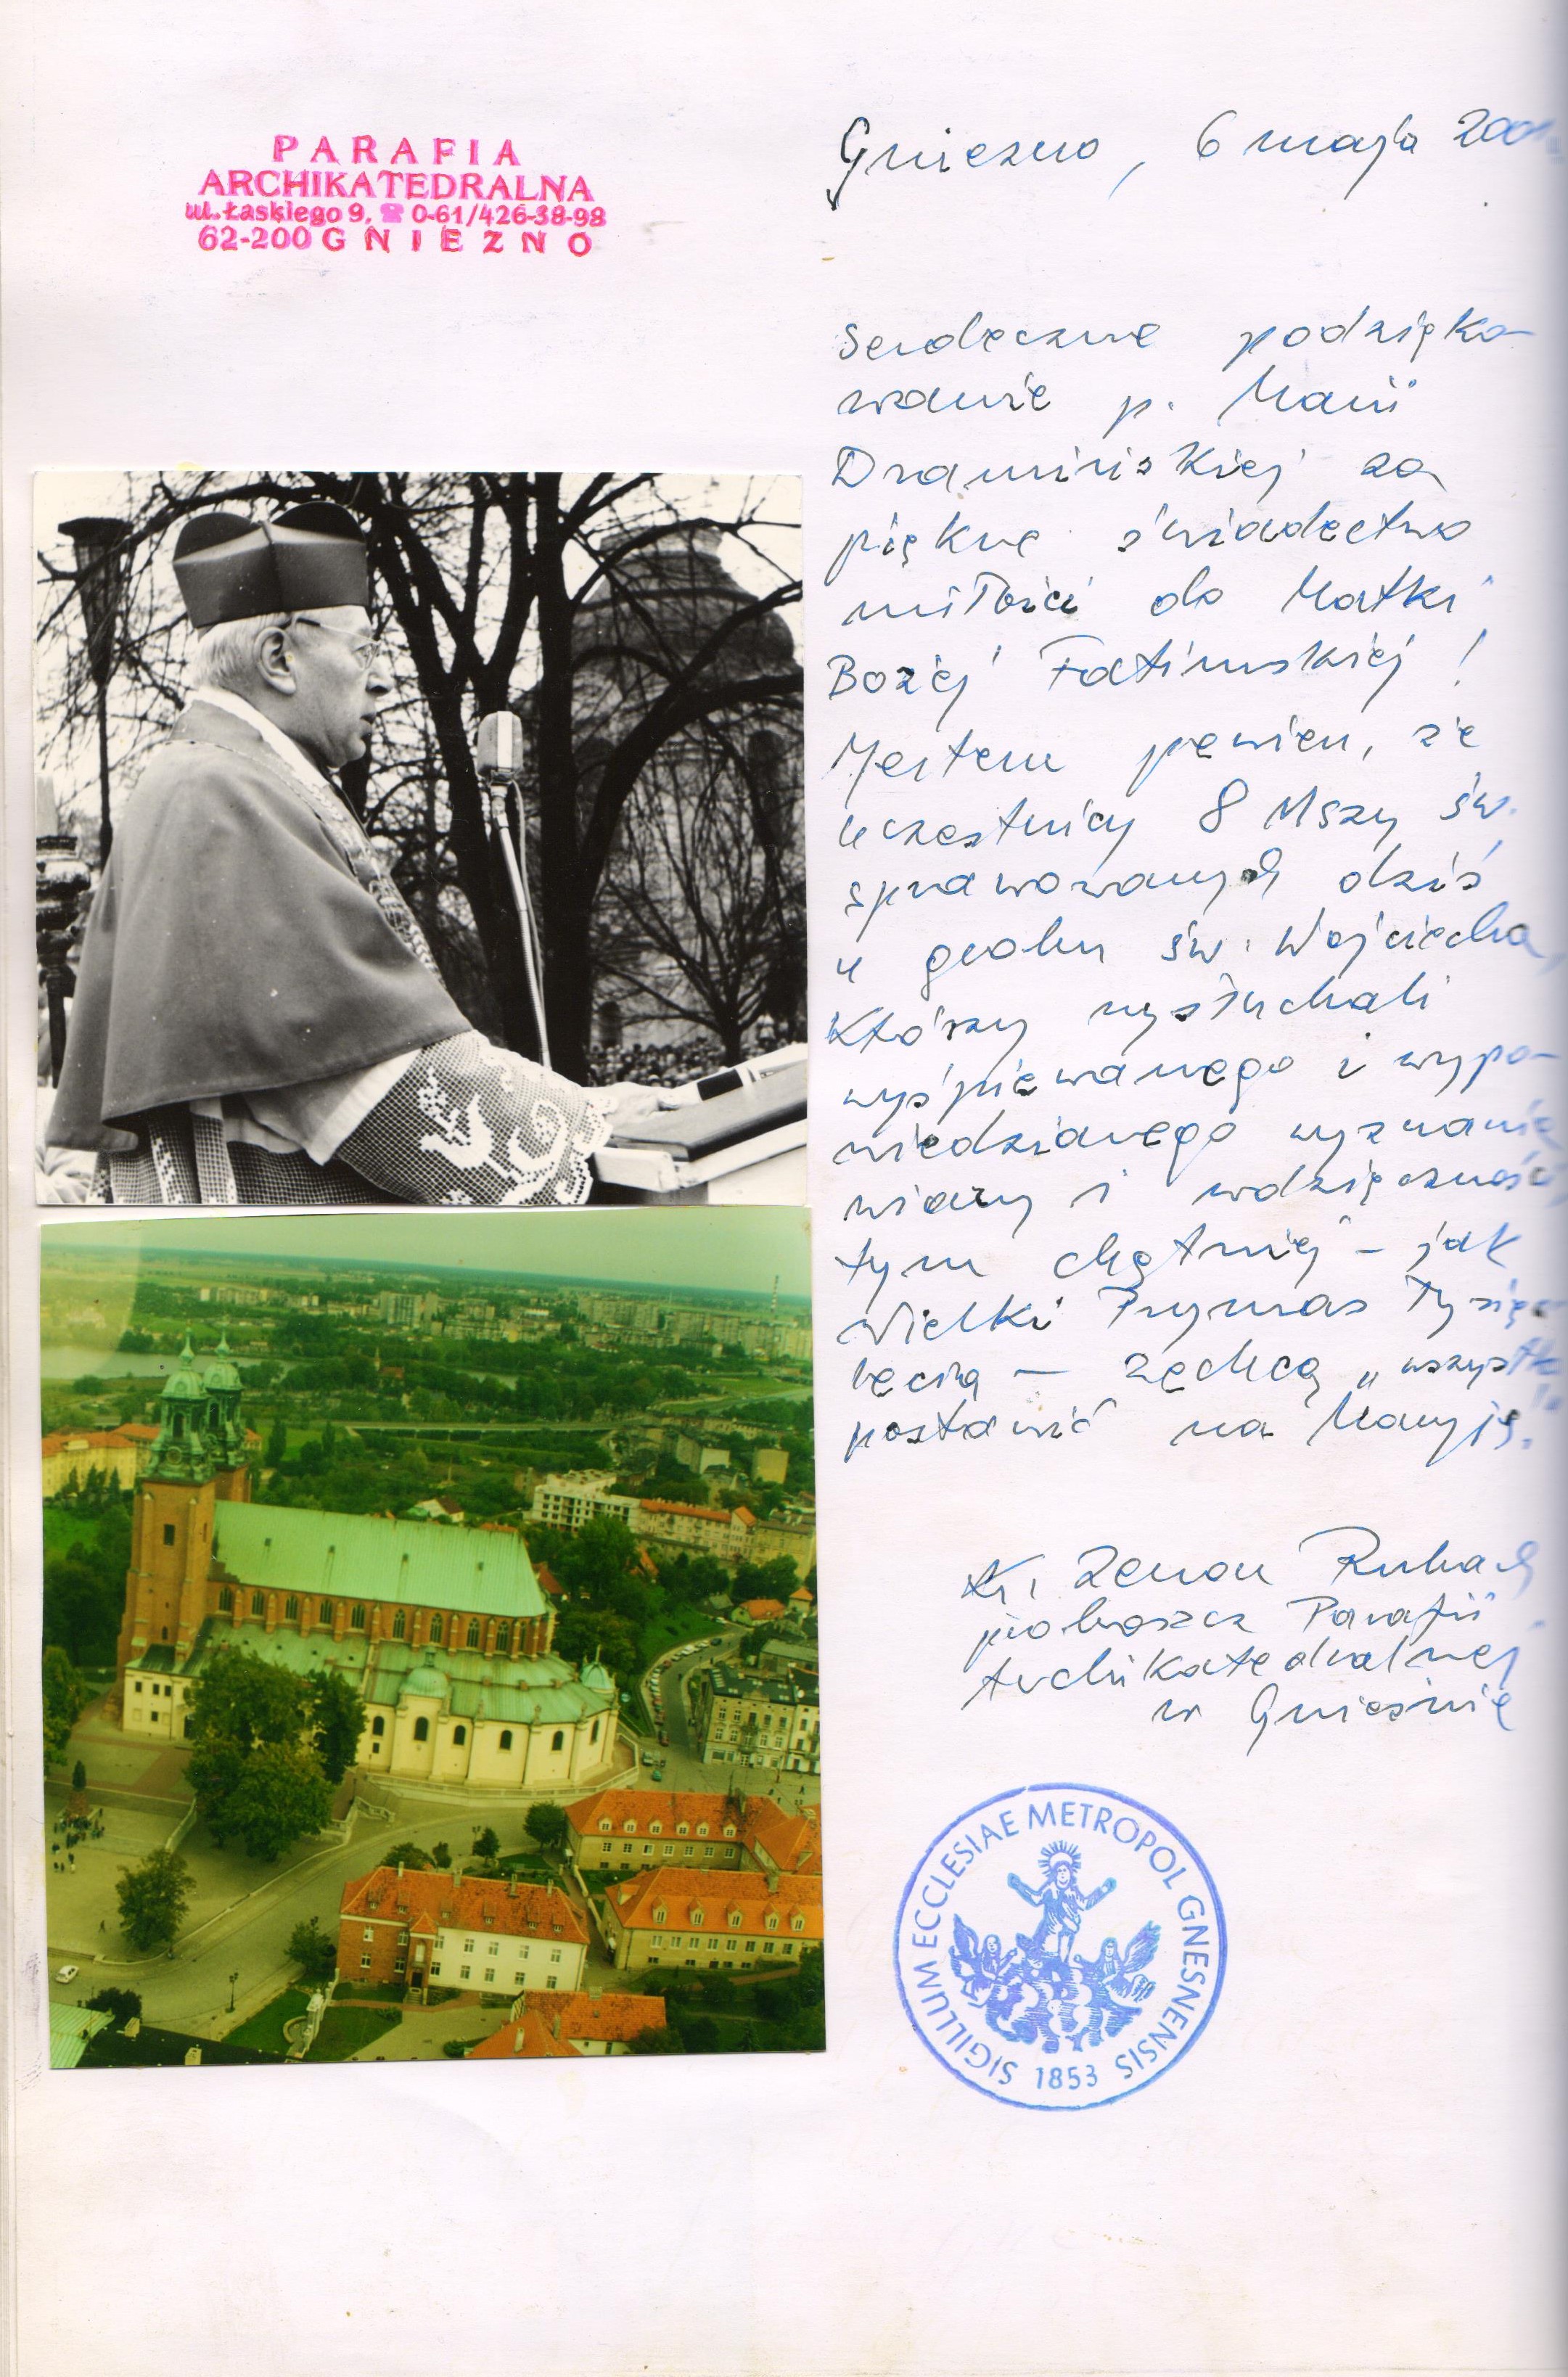 PARAFIA
ARCHIKATEDRALNA
ul. Łaskiego 9, ☎ 0-61/426-38-98
62-200 GNIEZNO
Gniezno, 6 maja
Serdeczne podzięko-
wanie p. Marii
Dramińskiej za
piękne świadectwo
miłości do Matki
Bożej Fatimskiej!
Jestem pewien, że
uczestnicy 8 Mszy św.
sprawowanych dziś
u grobu św. Wojciecha,
którzy wysłuchali
wyśpiewanego i wypo-
wiedzianego wyznania
wiary i wdzięczności
tym chętniej – jak
Wielki Prymas Tysiąc-
lecia – zechcą „wszystko
postawić na Maryję."
Ks. Zenon Rubach
proboszcz Parafii
Archikatedralnej
w Gnieźnie
SIGILLUM ECCLESIAE METROPOL GNESNENSIS
1853